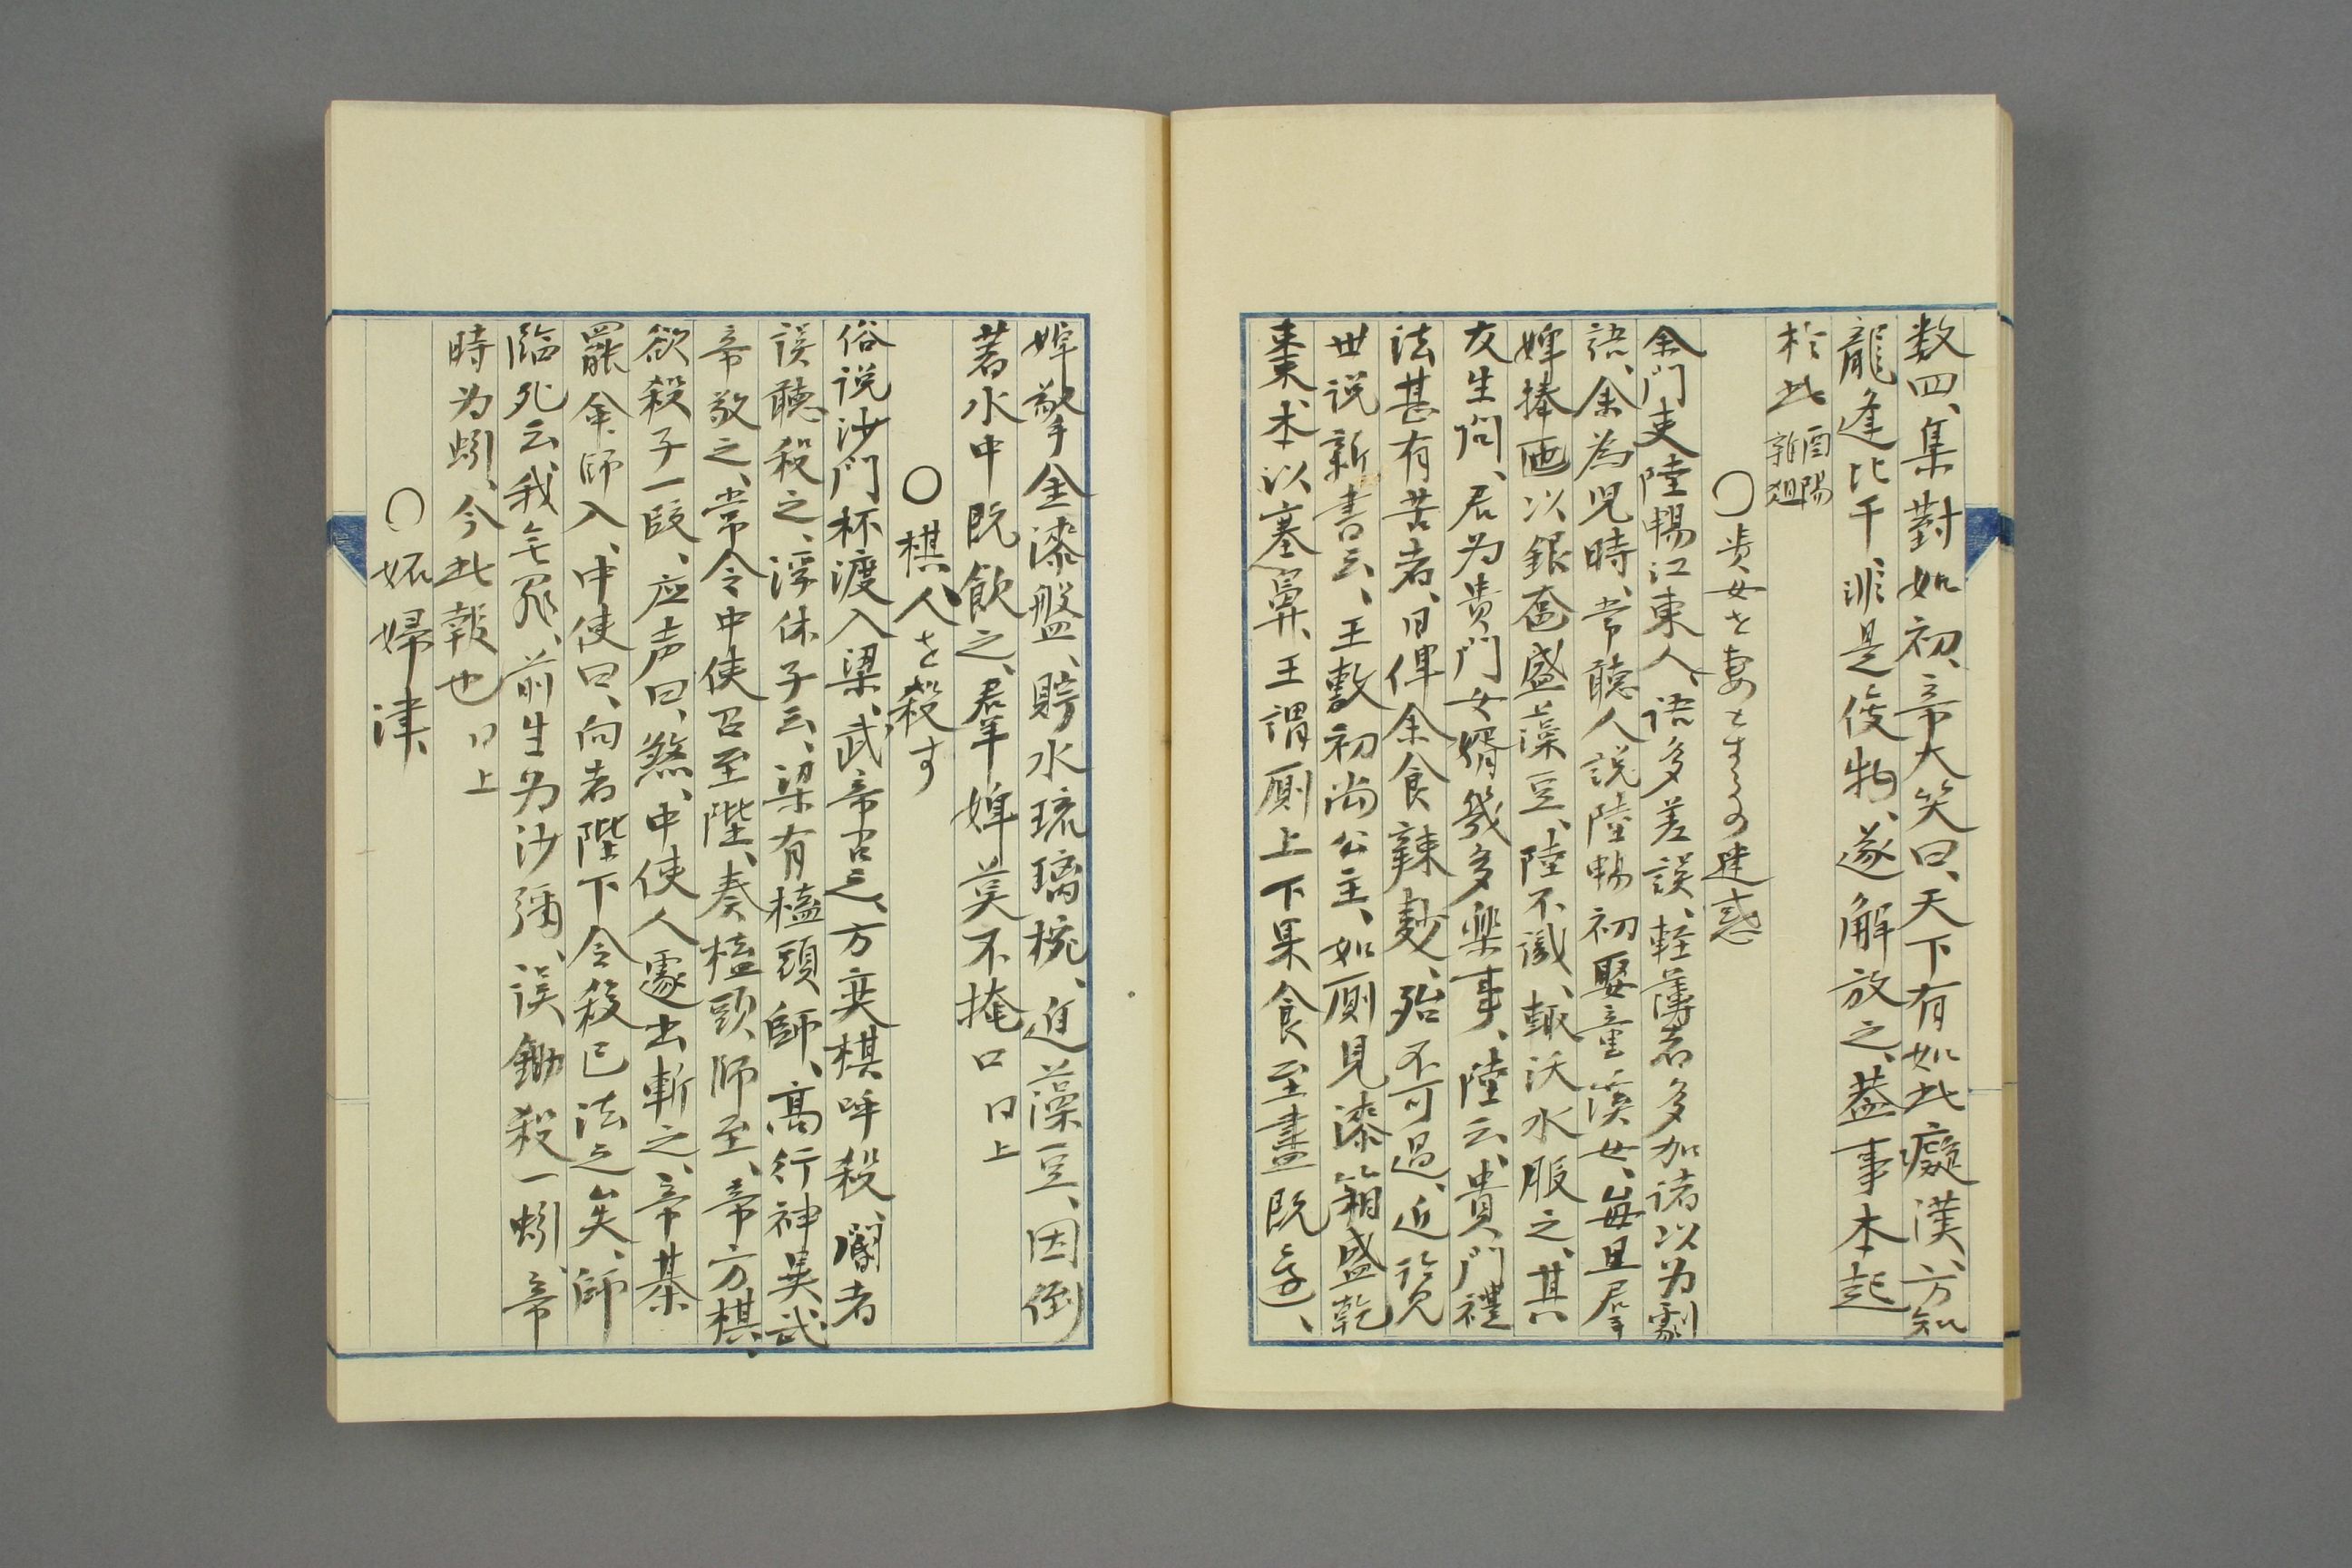 数四、集對如初、帝大笑曰、天下有如此癡漢、方知
龍逢比干、非是俊物、遂解放之、蓋事本起
於此 酉陽雜俎
〇貴女を妻とするの迷惑
余門吏陸暢江東人、語多差誤、軽薄者多加諸以为劇
語、余為児時、常聴人説陸暢初娶童溪女、毎旦群
婢捧匜以銀奩盛藻豆、陸不識、輙沃水服之、其
友生问、君为貴门女婿、幾多楽事、陸云、貴门禮
法甚有苦者、日俾余食辣麨、殆不可過、近覧
世说新書云、王敦初尚公主、如厠見漆箱盛乾
棗、本以塞鼻、王謂厠上下果食至盡、既還、
婢擎金漆盤、貯水琉璃椀、进藻豆、因倒
著水中既飲之、羣婢莫不掩口 同上
〇棋人を殺す
俗说沙门杯渡入梁、武帝召之、方奕棋呼殺、閽者
误聴殺之、浮休子云、梁有榼頭師、高行神異、武
帝敬之、常令中使召至陛、奏榼頭師至、帝方棋、
欲殺子一段、应声曰、煞、中使人遽出斬之、帝棊
罷、命師入、中使曰、向者陛下令殺、已法之矣、師
臨死云、我无罪、前生为沙彌、误鋤殺一蚓、帝
時为蚓、今此報也 同上
〇妬婦津